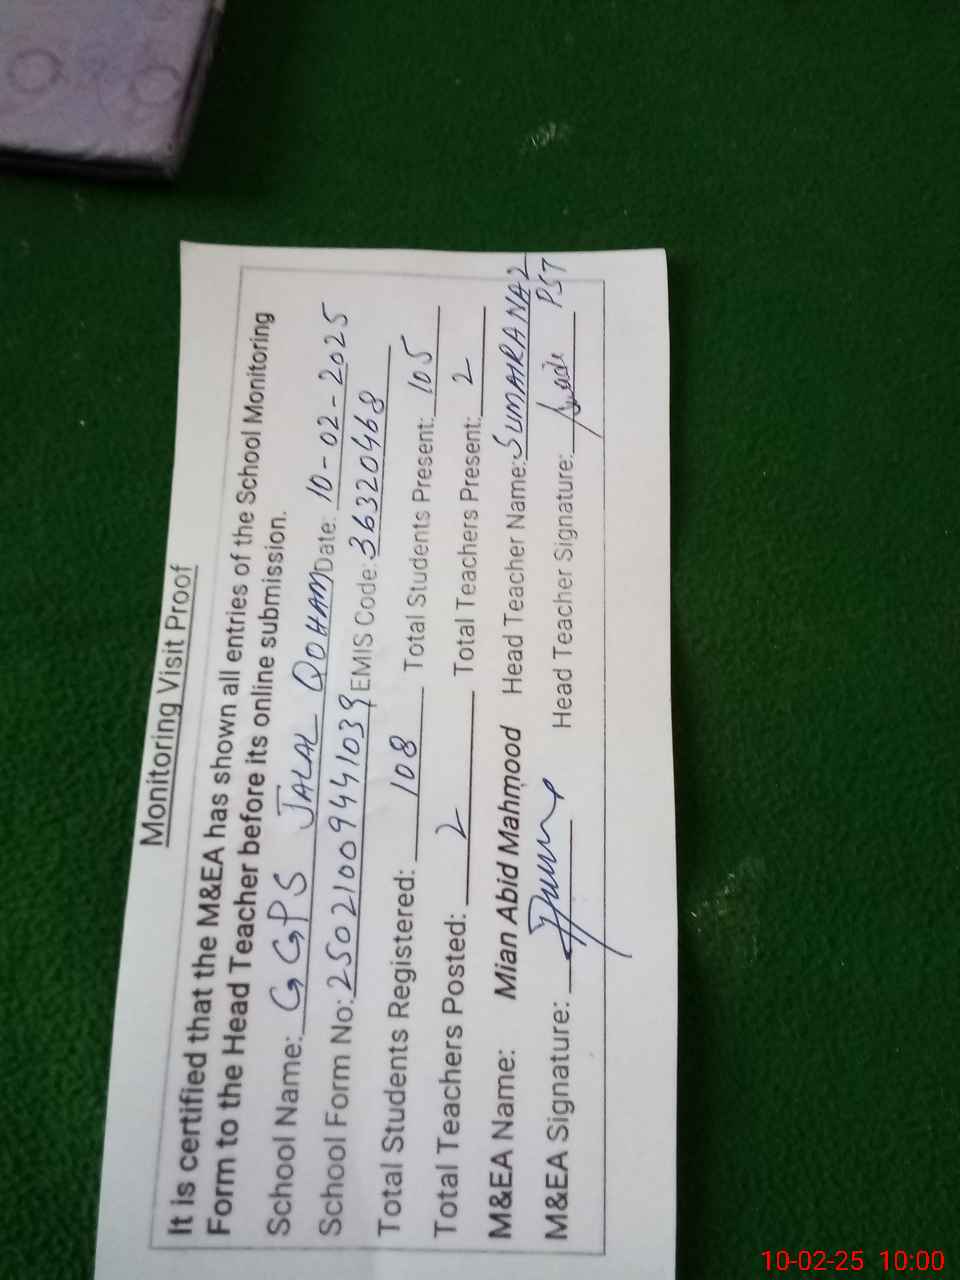 Monitoring Visit Proof
It is certified that the M&EA has shown all entries of the School Monitoring
Form to the Head Teacher before its online submission.
School Name: GGPS JALAL QOHAM Date: 10-02-2025
School Form No: 25021009441039 EMIS Code: 36320468
Total Students Registered: 108 Total Students Present: 105
Total Teachers Posted: 2 Total Teachers Present: 2
M&EA Name: Mian Abid Mahmood Head Teacher Name: SUMAIRA NAZ
M&EA Signature: Head Teacher Signature: PST
10-02-25 10:00